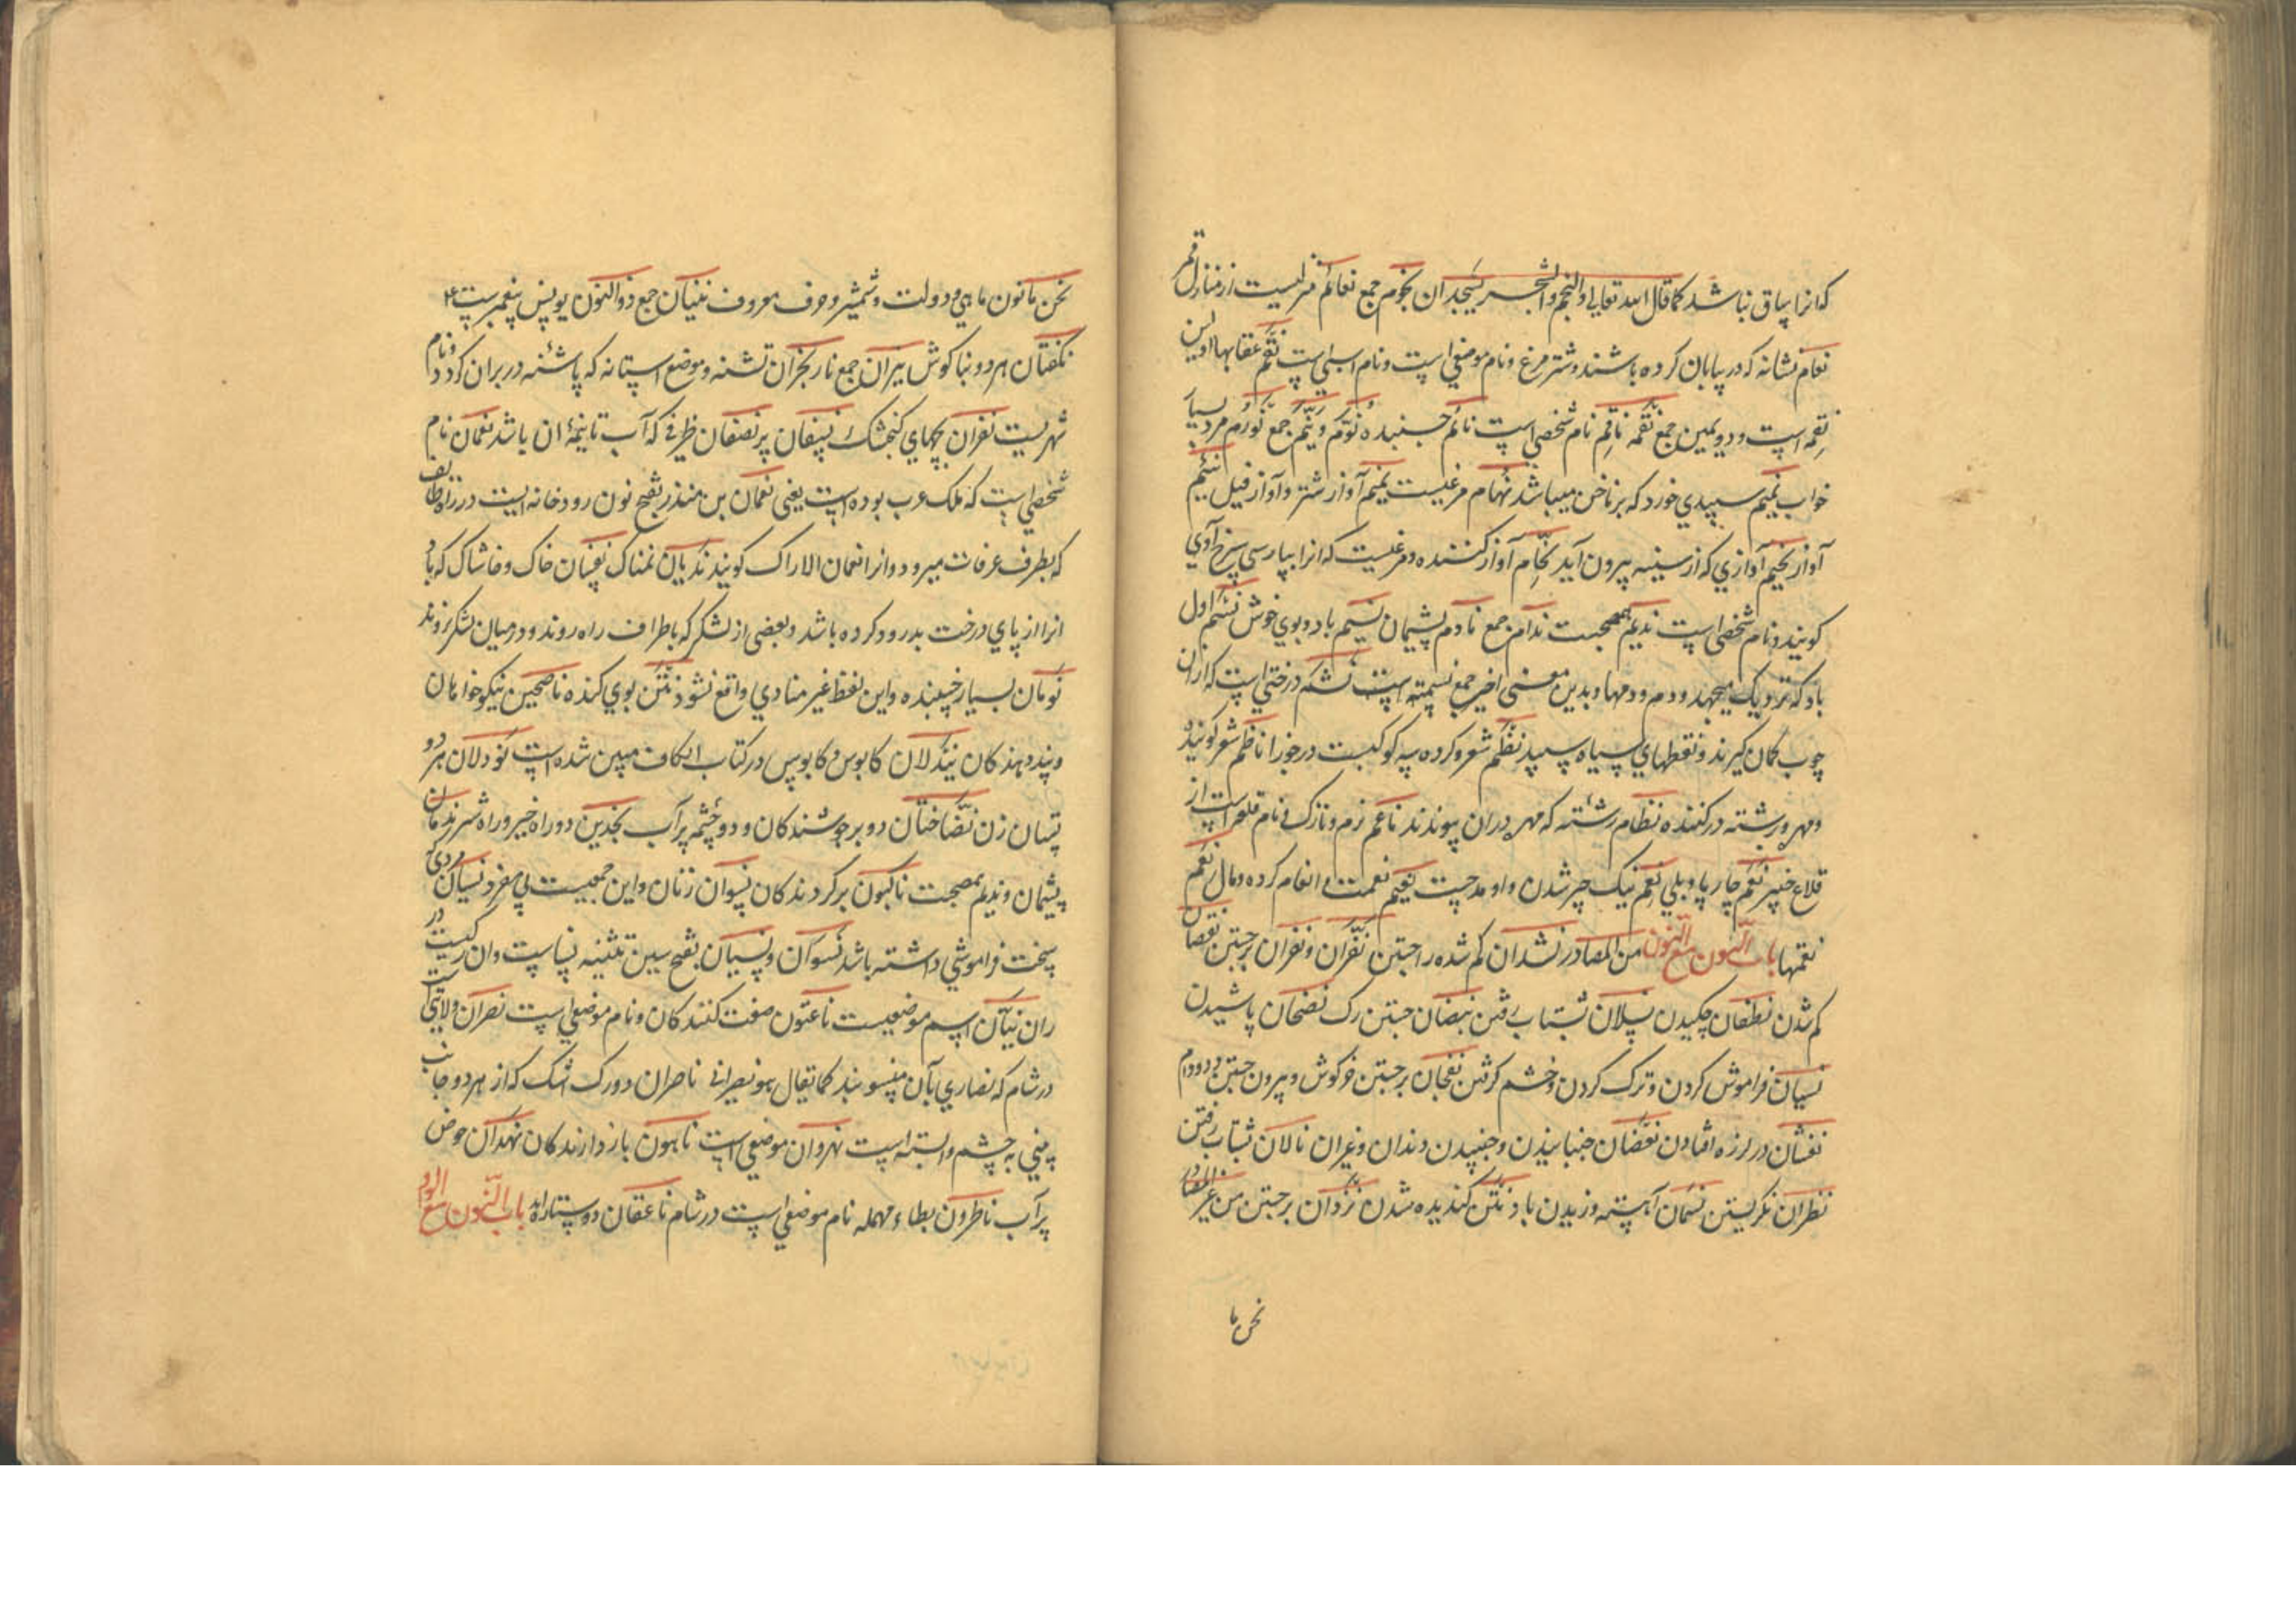 که انرا ساق نباشد کما قال الله تعالی والنجم والشجر یسجدان نجوم جمع نعائم منزلیست از منازل قمر
نعام نشانه که در بیابان کرده باشند و شتر مرغ و نام موضعی است و نام اسبی است نقم عقابها این
نقمه است و دویمین جمع نقمه ناقم نام شخصی است نائم خسبنده نوم و نیم جمع نؤوم مرد بسیار
خواب نمیم سپیدی خورد که بر ناخن میباشد نهام مرغیست نهیم آواز شتر و آواز فیل نئیم
آواز نحیم آوازی که از سینه بیرون آید نحام آواز کننده و مرغیست که انرا بپارسی سرخ آوی
کویند و نام شخصی است ندیم همصحبت ندام جمع نادم پشیمان نسیم باد و بوی خوش نسم اول
باد که نزدیک میجهد و دم و دمها و بدین معنی اخیر جمع نسمته است نشم درختی است که ازان
چوب کمان کیرند و نقطهای سیاه و سپید نظم شعر و کرده سه کوکبست در جوزا ناظم شعر کوینده
و مهره در رشته در کننده نظام رشته که مهره دران پیوندند ناعم نرم و نازک و نام قلعه است از
قلاع خیبر نعم چارپا و بلی نعم نیک چیز شدن و او مدحست نعیم نعمت و انعام کرده و مال نعم
نعمتها باب النون مع النون من المصادر نشدان کم شده را جستن نقزان و نفران برجستن نقصان
کم شدن نطفان چکیدن نسلان بشتاب رفتن نبضان جستن رک نضحان پاشیدن
نسیان فراموش کردن و ترک کردن و خشم کرفتن نفجان برجستن خرکوش و بیرون جستن دود
نفشان در لرزه افتادن نغضان جنبانیدن و جنبیدن دندان و غیران نالان بشتاب رفتن
نظران نکریستن نسمان آهسته وزیدن باد نتن کندیده شدن نزوان برجستن من غیر المصادر
نحن ما
نحن ما نون ماهی و دولت و شمشیر و حرف معروف نینان جمع ذوالنون یونس پیغمبرست ع
نکفتان هر دو بناکوش نیران جمع نار نجران تشنه و موضع استانه که پاشنه در بران کردد و نام
شهریست نغران بچهای کنجشک نصفان ظرفی که آب تا نیمهٔ ان باشد نعمان نام
شخصی است که ملک عرب بوده است یعنی نعمان بن منذر بفتح نون رودخانه ایست در راه طایف
که بطرف عرفات میرود و انرا نعمان الاراک کویند ندیان نمناک نفیان خاک و خاشاک که باد
انرا از پای درخت بدرود کرده باشد و بعضی از لشکر که باطراف راه روند و در میان لشکر نروند
نومان بسیار خسبنده و این لفظ غیر منادی واقع نشود نتن بوی کنده ناصحین نیکو خواهان
و پند دهندکان نیدلان کابوس و کابوس در کتاب الکاف مبین شده است نودلان هر دو
پستان زن نضاختان دو برجوشندکان و دو چشمه پر آب نجدین دو راه خیر و راه شر ندمان
پشیمان و ندیم همصحبت ناکبون برکردندکان نسوان زنان و این جمعیست بی مفرد نسیان مردی که
سخت فراموشی داشته باشد نسوان و نسیان بفتح سین تثنیه نساست و ان رکیست در
ران نیان اسم موضعیست ناعتون صفت کنندکان و نام موضعی است نصران ولایتی است
در شام که نصاری بآن منسوبند کما یقال هو نصرانی ناصران دو رک اشک که از هر دو جانب
بینی به چشم وابسته است نهروان موضعی است ناهون بازدارندکان نهدان حوض
پر آب ناطرون بطاء مهمله نام موضعی است در شام ناعقان دو ستاره اند باب النون مع الواو